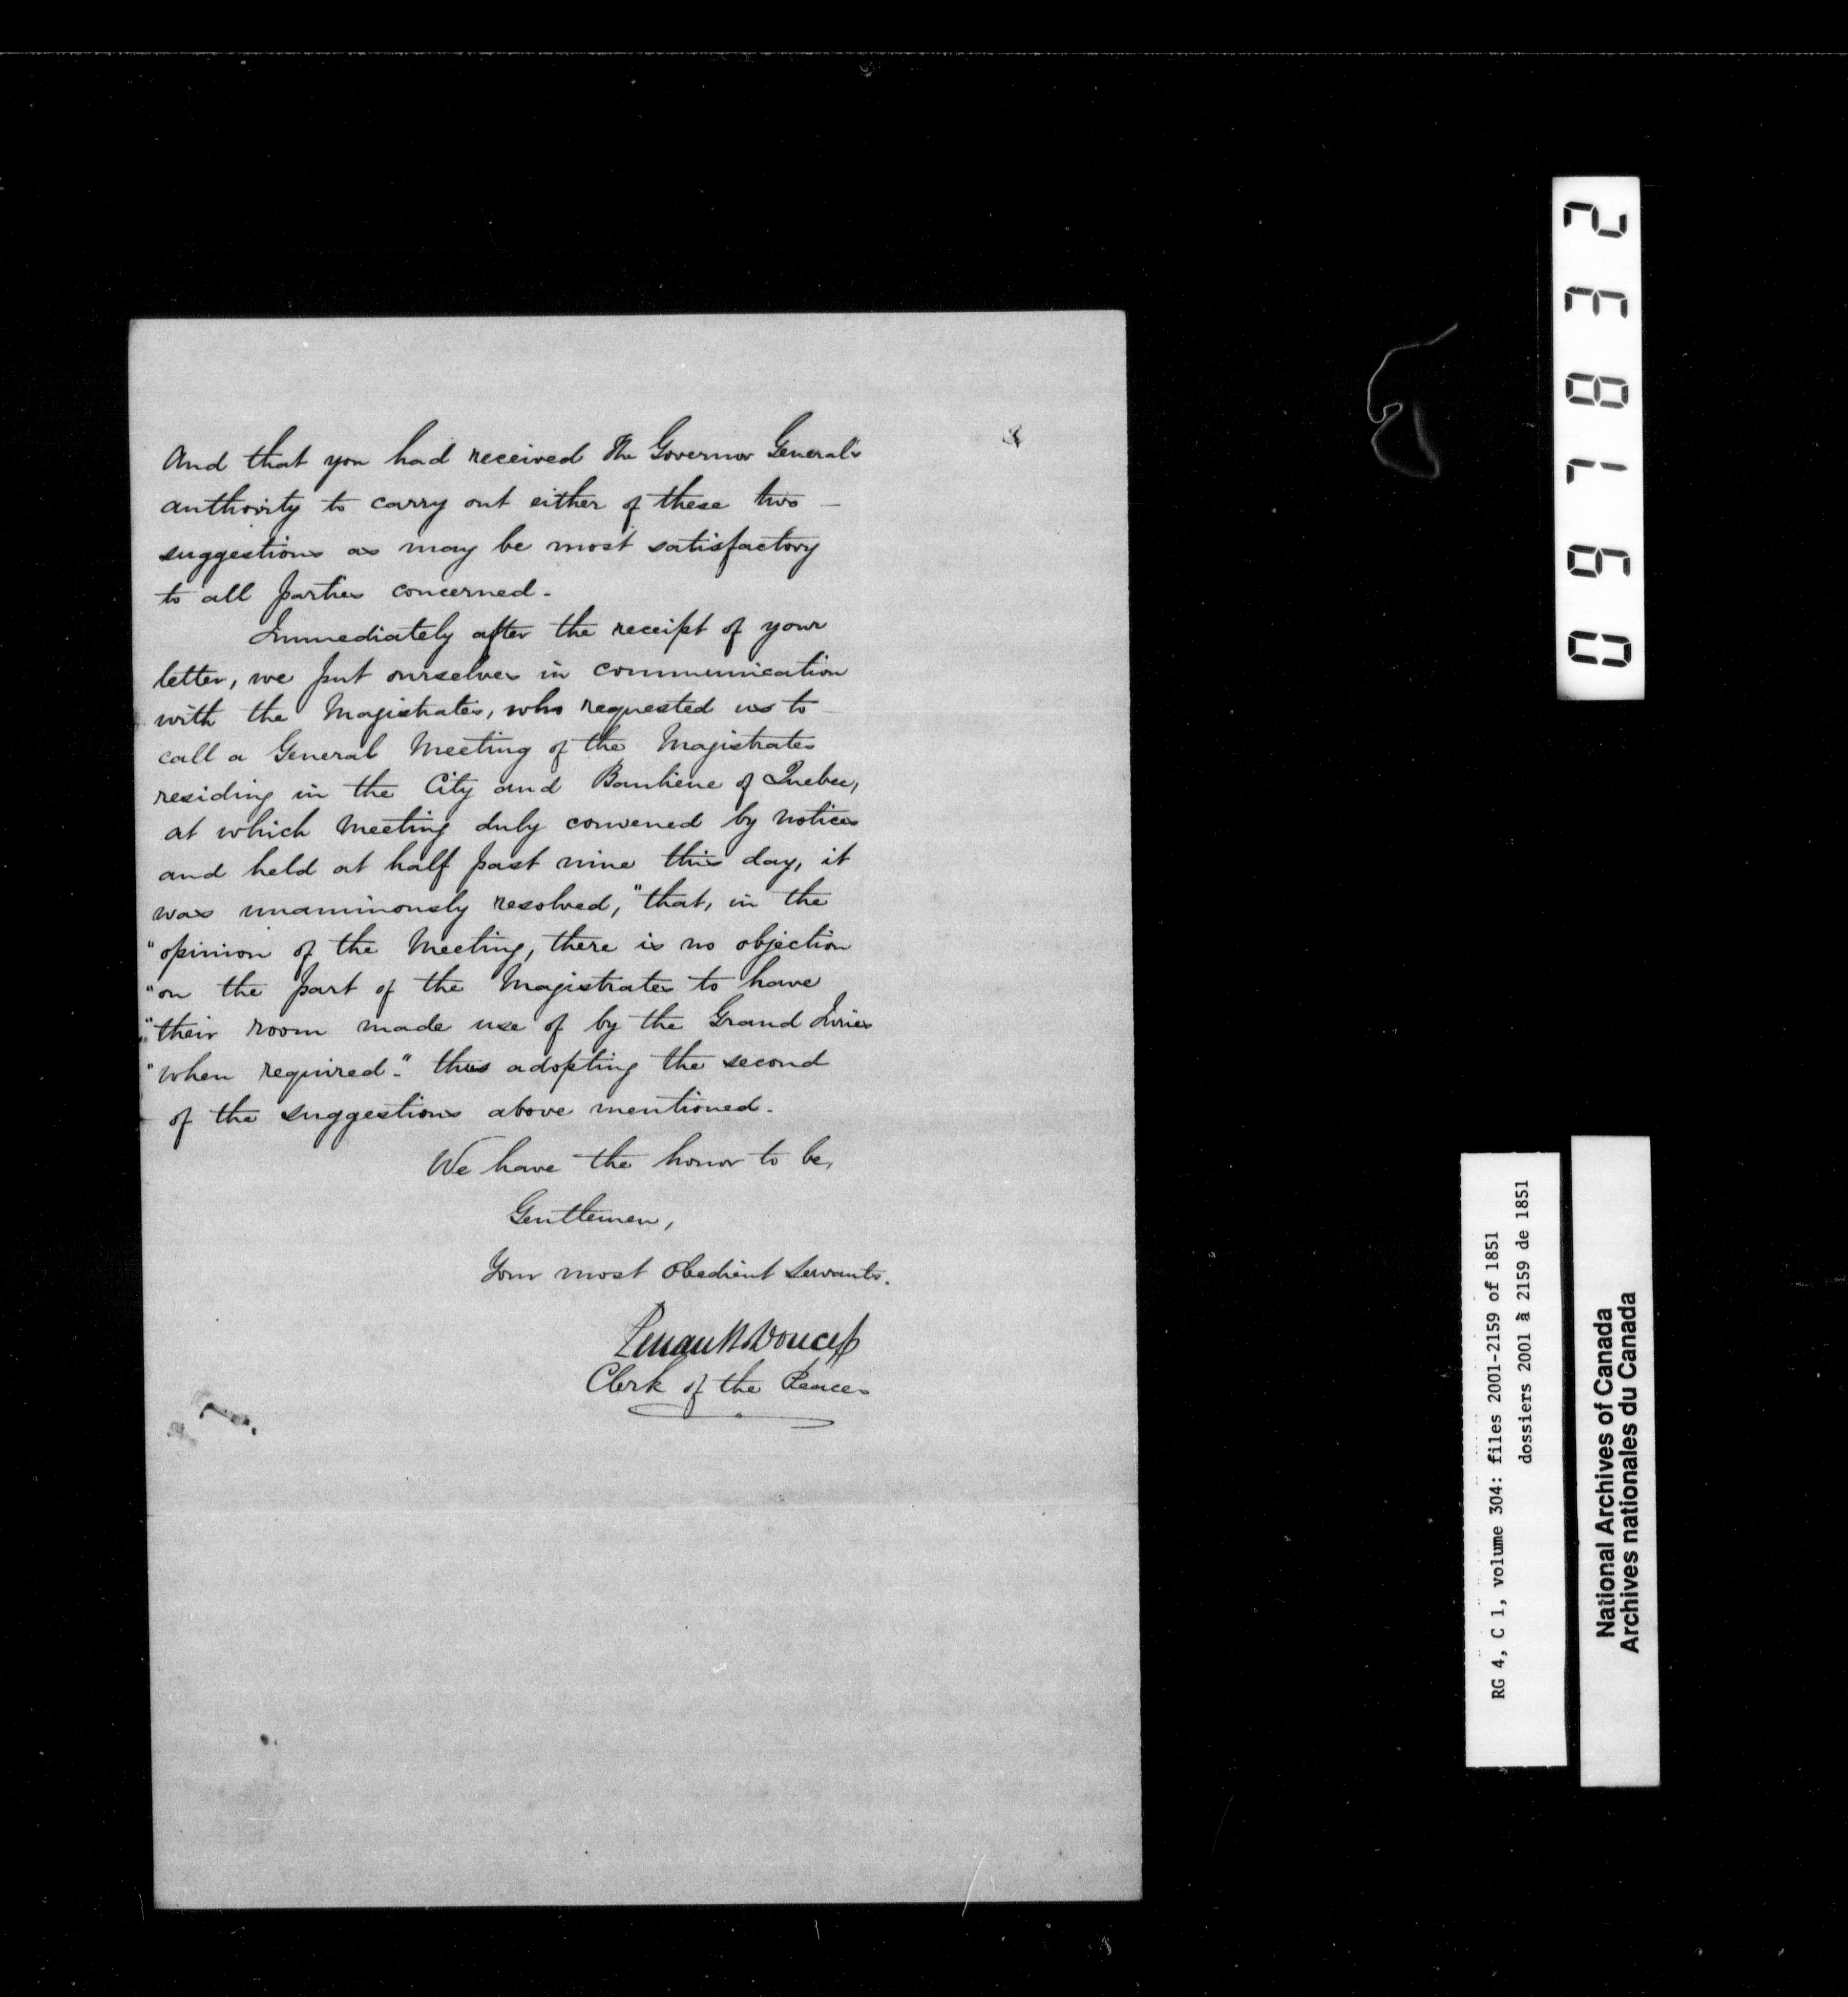 And that you had received the Governor General's
authority to carry out either of these two —
suggestions as may be most satisfactory
to all parties concerned.
Immediately after the receipt of your
letter, we put ourselves in communication
with the Magistrates, who requested us to
call a General Meeting of the Magistrates
residing in the City and Banliene of Quebec,
at which Meeting duly convened by notices
and held at half past nine this day, it
was unaminously resolved, "that, in the
"opinion of the Meeting, there is no objection
"on the part of the Magistrates to have
"their room made use of by the Grand Juries
"when required." thus adopting the second
of the suggestions above mentioned.
We have the honor to be,
Gentlemen,
Your most Obedient Servants.
Perrault & Doucet
Clerk of the Peace
067832
RG 4, C 1, volume 304: files 2001-2159 of 1851
dossiers 2001 à 2159 de 1851
National Archives of Canada
Archives nationales du Canada